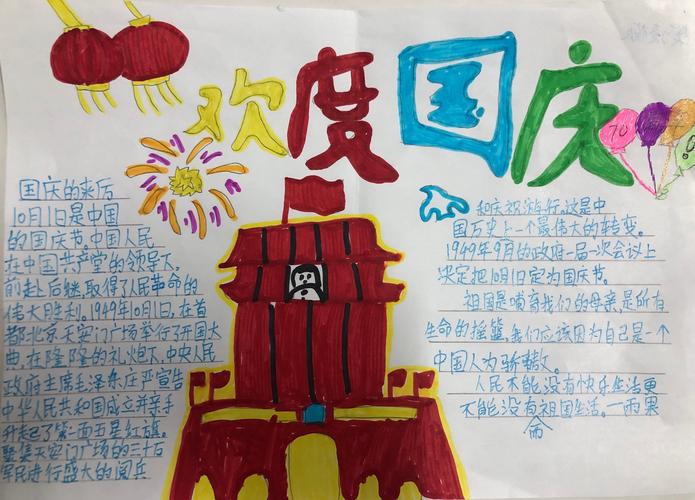 欢度国庆
70
国庆的来历
10月1日是中国
的国庆节。中国人民
在中国共产党的领导下,
前赴后继,取得了人民革命的
伟大胜利。1949年10月1日,在首
都北京天安门广场举行了开国大
典,在隆隆的礼炮下,中央人民
政府主席毛泽东庄严宣告
中华人民共和国成立并亲手
升起了第一面五星红旗。
聚集天安门广场的三十万
军民进行盛大的阅兵
和庆祝游行。这是中
国历史上一个最伟大的转变。
1949年9月的政府一届一次会议上
决定把10月1日定为国庆节。
祖国是哺育我们的母亲,是所有
生命的摇篮,我们应该因为自己是一个
中国人为骄傲。
人民不能没有快乐生活更
不能没有祖国生活。一雨果
命